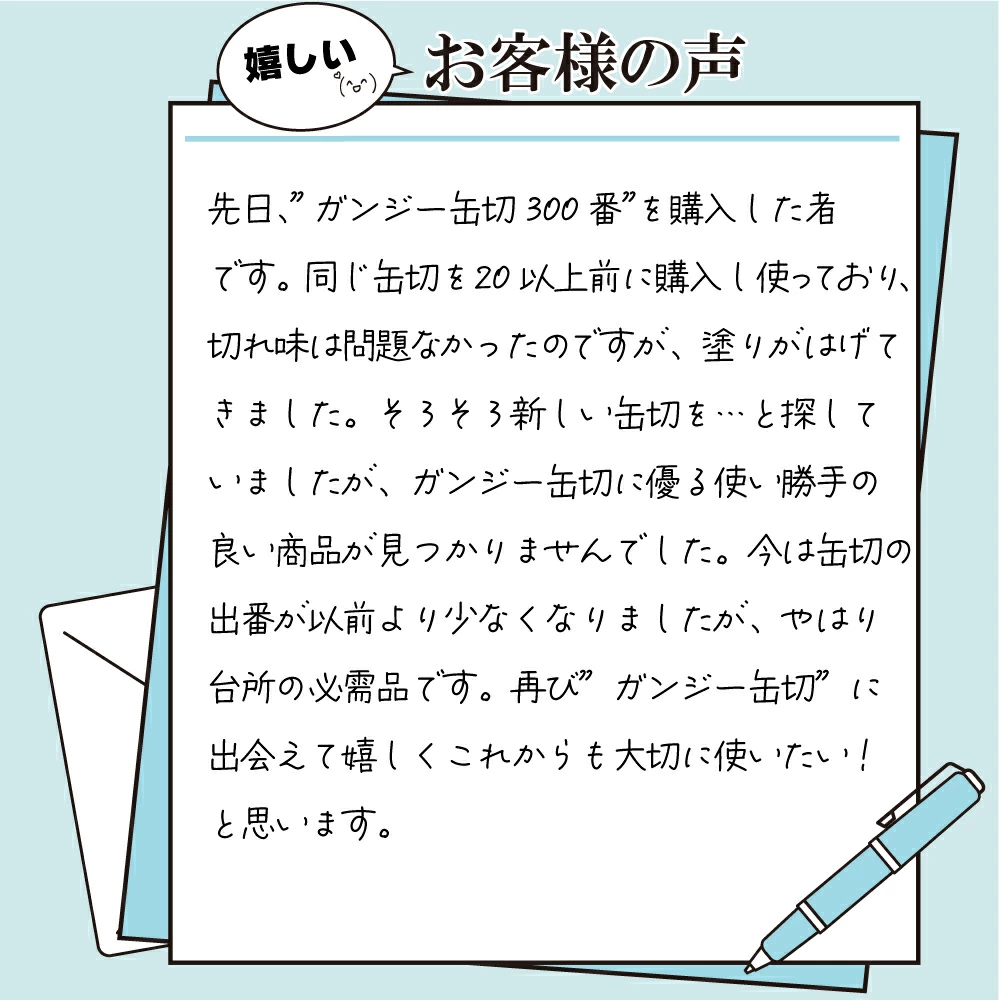 嬉しい
お客様の声
先日、”ガンジー缶切300番”を購入した者
です。同じ缶切を20以上前に購入し使っており、
切れ味は問題なかったのですが、塗りがはげて
きました。そろそろ新しい缶切を…と探して
いましたが、ガンジー缶切に優る使い勝手の
良い商品が見つかりませんでした。今は缶切の
出番が以前より少なくなりましたが、やはり
台所の必需品です。再び”ガンジー缶切”に
出会えて嬉しくこれからも大切に使いたい！
と思います。